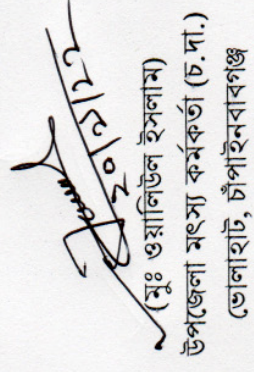 ২০/১/২২
(মুঃ ওয়ালিউল ইসলাম)
উপজেলা মৎস্য কর্মকর্তা (চ.দা.)
ভোলাহাট, চাঁপাইনবাবগঞ্জ